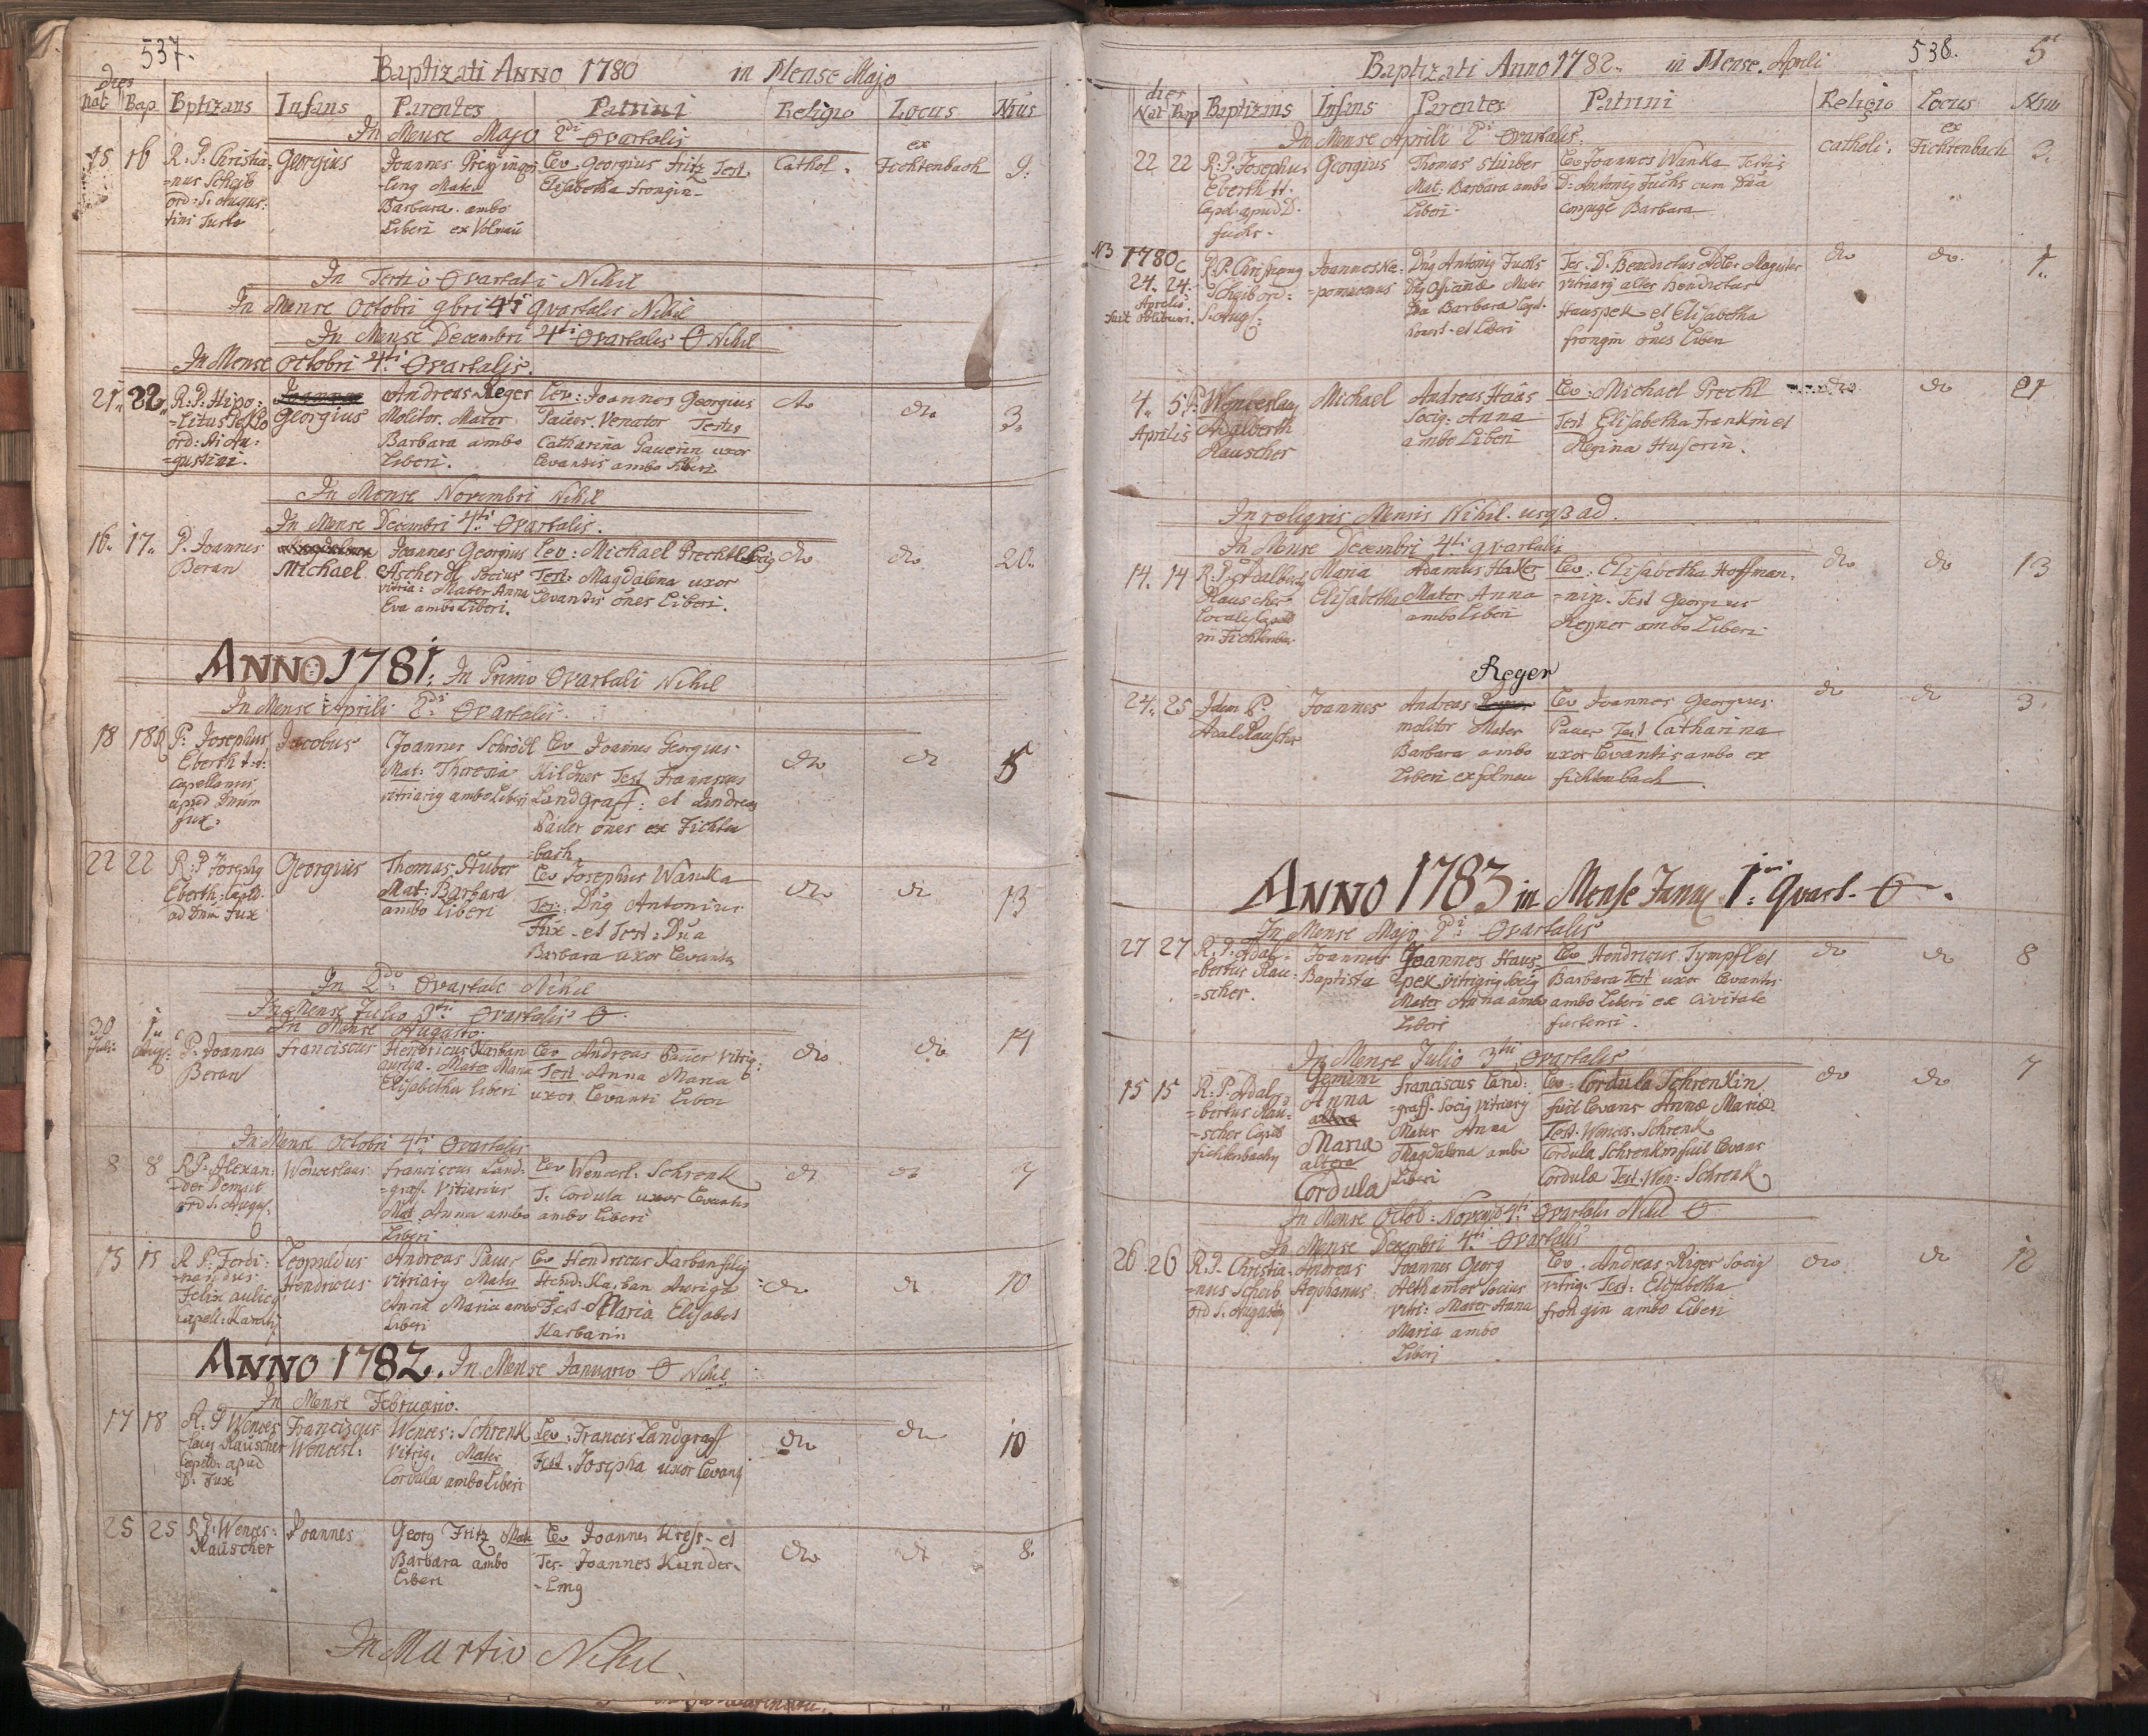 537.
Baptizati ANNO 1780 in Mense Majo
dies
Nat Bap. Bptizans Infans Parentes Patrini Religio Locus Nrus
In Mense Majo 2di Qvartalis
15 16 R. P. Christia- Georgius Joannes Cev. Georgius Fritz Test. Cathol. ex Fichtenbach 9.
=nus Scheib ling Mater Elisabetha frongin
ord: S. Augus: Barbara ambo
tini Liberi ex
In Tertio Qvartali Nihil
In Mense Octobri 9bri 4ti Qvartalis Nihil
In Mense Decembri 4ti Qvartalis O Nihil
In Mense Octobri 4ti Qvartalis.
21. 22. R. P. Hipo: Andreas Reger Lev: Joannes Georgius do do. 3.
=litus Georgius Molitor. Mater Pauer. Venator Testis
ord: Si Au: Barbara ambo Catharina Pauerin uxor
=gustini. Liberi. Levantis ambo Liberi
In Mense Novembri Nihil
In Mense Decembri 4ti Qvartalis.
16. 17. P. Joannes Joannes Georgius Lev: Michael Prechtl Socig do do. 20.
Beran Michael Ascherdl Socius Test: Magdalena uxor
vitria: Mater Anna Levantis ones Liberi.
Eva ambo Liberi.
ANNO 1781. In Primo Qvartali Nihil
In Mense Aprili 2di Qvartalis.
18 18 P. Josephus Jacobus Joannes Schrödl Lev Joannes Georgius do do 5
Eberth Mat: Theresia Kildner Test Franciscus
Capellanus vitriarig ambo Liberi Landgraff: et Andreas
apud Dnum Pauer ones ex Fichten
fux. =bach
22 22 R: P Josephg Georgius Thomas Stuber Lev Josephus Wanka do do 13
Eberth: Capll. Mat: Barbara Tes: Dng Antonius
ad Dnm Fux ambo Liberi Fux - et Test: Dna
Barbara uxor Levantis
In 2do Qvartale Nihil
In Mense Julio 3tii Qvartalis O
In Mense Augusto.
30 1. P. Joannes Franciscus Hendricus Karban Lev Andreas Pauer vitrig: do do 14
Juli: Aug: Beran auriga. Mater Maria Test Anna Maria
Elisabetha Liberi uxor Levanti Liberi
In Mense Octobri 4ti Qvartalis
8 8 RP. Alexan: Wenceslaus Franciscus Land: Lev Wencesl. Schrenk do do 7
=der =graff. Vitriarius T. Cordula uxor Levantis
ord S. August. Mat. Anna ambo ambo Liberi
Liberi
15 15 R P: Ferdi: Leopuldus Andreas Pauer Lev Hendricus Karban filig do do 10
=nandus Hendricus vitriarg Mater Hend: Karban Auriga
Felix aulicg Anna Maria ambo Test. Maria Elisabet
capell: Liberi Karbanin
ANNO 1782. In Mense Januario O Nihil
In Mense Februario.
17 18 R. P Wences Franciscus Wences: Schrenk Lev: Francis Landgraff do do 10
=laus Rauscher Wencesl: Vitrig. Mater Test. Josepha uxor Levantis
Capell: apud Cordula ambo Liberi
D. Fux
25 25 R. P. Wences: Joannes Georg Fritz Mater Lev Joannes Kress- et do do 8.
Rauscher Barbara ambo Tes- Joannes Kunder-
Liberi =ling
In Martio Nihil.
538. 5
Baptizati Anno 1782. in Mense Aprili
dies
Nat Bap Baptizans Infans Parentes Patrini Religio Locus Nrus
In Mense Aprili 2di Qvartalis.
22 22 R: P. Josephus Georgius Thomas Stuiber Lev Joannes Wanka Testis catholi. ex Fichtenbach 2.
Eberth Mat: Barbara ambo D: Antonig Fuchs cum Dna
Capel. apud D. Liberi. Conjuge Barbara
fuchs.
NB 1780 R. P. Christiang Joannes Ne: Dng Antonig Fuchs Tes. D. Benedictus Adler Magister do do. 1.
24. 24. Scheib ord: =pomucenus Mater vitriarg alter Bendictus
Aprelis S. Aug: Dna Barbara Hauspek et Elisabetha
fuit et Liberi frongin ones Liberi
4. 5 P: Wenceslaus Michael Andreas Haas Lev: Michael Prechl do do 21
Aprilis Adalberth Socig: Anna Test Elisabetha Frankin et
Rauscher ambo Liberi Regina Huserin.
In reliqvis Mensis Nihil. usq3 ad.
In Mense Decembri 4ti qvartalis
14. 14 R. P. Adalbert Maria Adamus Haker Lev: Elisabetha Hoffman. do do 13
Rauscher Elisabetha Mater Anna =nin. Test Georgius
Locale Capell ambo Liberi Reyner ambo Liberi
in Fichtenbac
Reger
24. 25 Idem P. Joannes Andreas Lev Joannes Georgius do do 3.
Adal Rauscher molitor Mater Pauer Test Catharina
Barbara ambo uxor Levantis ambo ex
Liberi ex folmau fichtenbach.
ANNO 1783 in Mense Janny 1mi Quart. O.
In Mense Majo 2di Qvartalis
27 27 R. P. Adal- Joannes Joannes Haus Lev Hendricus Tympfl et do do 8
=bertus Rau: Baptista pek vitriarig Socig Barbara Test uxor Levantis
=scher. Mater Anna ambo ambo Liberi ex Civitate
Liberi furtensi.
In Mense Julio 3tii Qvartalis
15 15 R. P. Adal Gemini Franciscus Land: Lev: Cordula Schrenkin do do 7
=bertus Rau: Anna =graff. Socig vitriarg fuit Levans Annæ Mariæ
=scher Capell Maria Mater Anna Test. Wences. Schrenk
fichtenbachy altera Magdalena ambo Cordula Schrenkin fuit Levans
Cordula Liberi Cordulæ Test. Wen: Schrenk
In Mense Octob: Novemb 4ti Qvartalis Nihil O
In Mense Decembri 4ti Qvartalis
26 26 R. P. Christia- Andreas Joannes Georg Lev. Andreas Riger Socig do do 12
=nus Scheib Stephanus Althamer Socius vitrig. Test: Elisabetha
ord S. Augustin vitri: Mater Anna frongin ambo Liberi
Maria ambo
Liberi